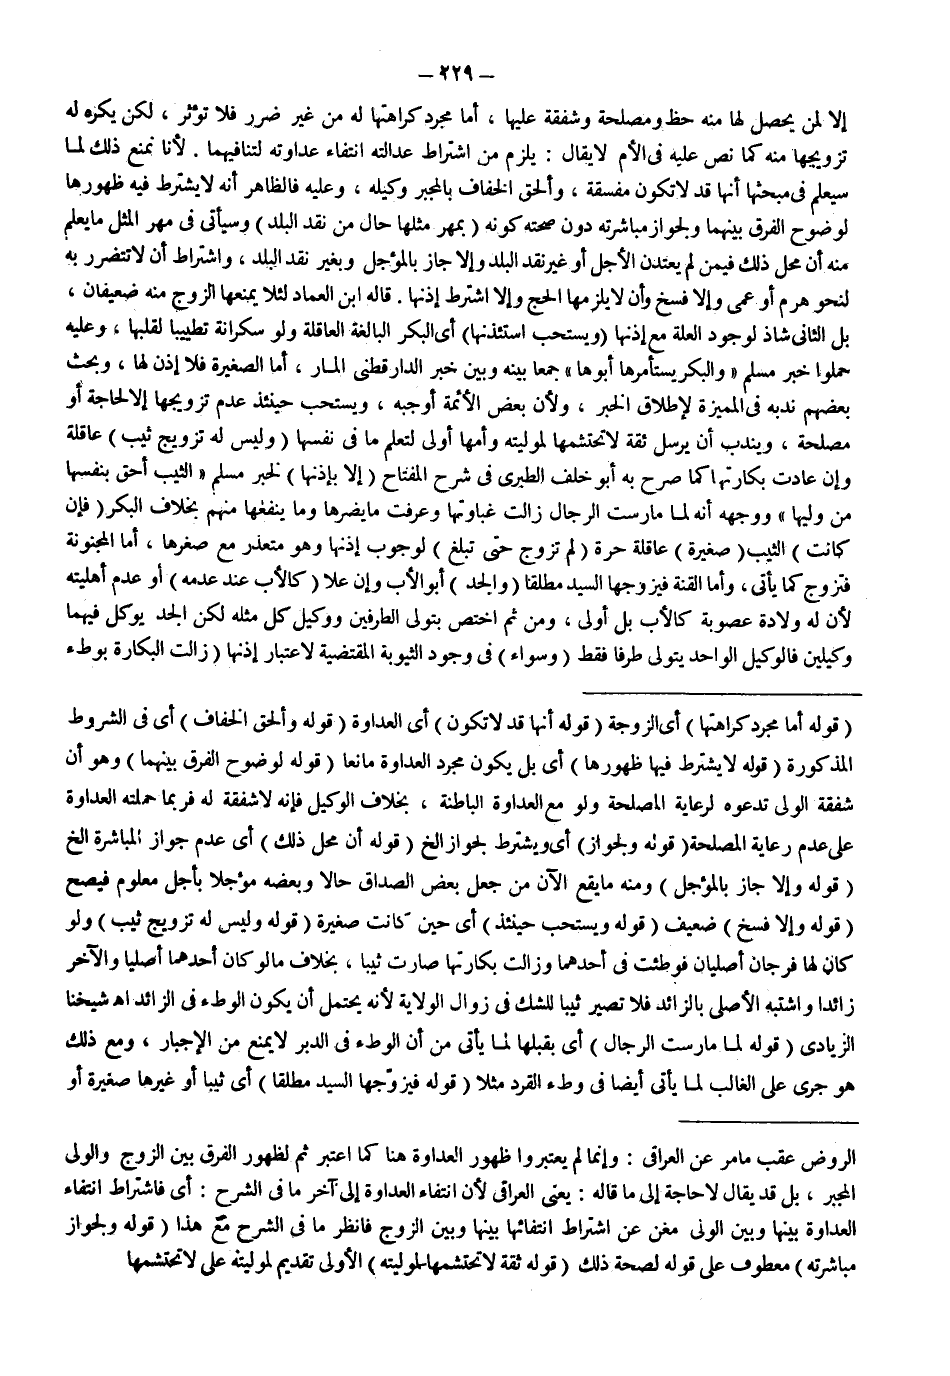 – ٢٢٩ –
إلا لمن يحصل لها منه حظ ومصلحة وشفقة عليها ، أما مجرد كراهتها له من غير ضرر فلا تؤثر ، لكن يكره له
تزويجها منه كما نص عليه فى الأم لايقال : يلزم من اشتراط عدالته انتفاء عداوته لتنافيهما . لأنا نمنع ذلك لما
سيعلم فى مبحثها أنها قد لاتكون مفسقة ، وألحق الخفاف بالمجبر وكيله ، وعليه فالظاهر أنه لايشترط فيه ظهورها
لوضوح الفرق بينهما ولجواز مباشرته دون صحته كونه ( بمهر مثلها حال من نقد البلد ) وسيأتى فى مهر المثل مايعلم
منه أن محل ذلك فيمن لم يعتدن الأجل أو غير نقد البلد وإلا جاز بالمؤجل وبغير نقد البلد ، واشتراط أن لاتتضرر به
لنحو هرم أو عمى وإلا فسخ وأن لايلزمها الحج وإلا اشترط إذنها . قاله ابن العماد لئلا يمنعها الزوج منه ضعيفان ،
بل الثانى شاذ لوجود العلة مع إذنها (ويستحب استئذنها) أى البكر البالغة العاقلة ولو سكرانة تطييبا لقلبها ، وعليه
حملوا خبر مسلم « والبكر يستأمرها أبوها » جمعا بينه وبين خبر الدارقطنى المـار ، أما الصغيرة فلا إذن لها ، وبحث
بعضهم ندبه فى المميزة لإطلاق الخبر ، ولأن بعض الأئمة أوجبه ، ويستحب حينئذ عدم تزويجها إلالحاجة أو
مصلحة ، ويندب أن يرسل ثقة لاتحتشمها لموليته وأمها أولى لتعلم ما فى نفسها ( وليس له تزويج ثيب ) عاقلة
وإن عادت بكارتها كما صرح به أبو خلف الطبرى فى شرح المفتاح ( إلا بإذنها ) لخبر مسلم « الثيب أحق بنفسها
من وليها » ووجهه أنه لمـا مارست الرجال زالت غباوتها وعرفت مايضرها وما ينفعها منهم بخلاف البكر ( فإن
كانت ) الثيب ( صغيرة ) عاقلة حرة ( لم تزوج حتى تبلغ ) لوجوب إذنها وهو متعذر مع صغرها ، أما المجنونة
فتزوج كما يأتى ، وأما القنة فيزوجها السيد مطلقا ( والجد ) أبوالأب وإن علا ( كالأب عند عدمه ) أو عدم أهليته
لأن له ولادة عصوبة كالأب بل أولى ، ومن ثم اختص بتولى الطرفين ووكيل كل مثله لكن الجد يوكل فيهما
وكيلين فالوكيل الواحد يتولى طرفا فقط ( وسواء ) فى وجود الثيوبة المقتضية لاعتبار إذنها ( زالت البكارة بوطء
( قوله أما مجرد كراهتها ) أى الزوجة ( قوله أنها قد لاتكون ) أى العداوة ( قوله وألحق الخفاف ) أى فى الشروط
المذكورة ( قوله لايشترط فيها ظهورها ) أى بل يكون مجرد العداوة مانعا ( قوله لوضوح الفرق بينهما ) وهو أن
شفقة الولى تدعوه لرعاية المصلحة ولو مع العداوة الباطنة ، بخلاف الوكيل فإنه لاشفقة له فربما حملته العداوة
على عدم رعاية المصلحة ( قوله ولجواز ) أى ويشترط لجواز الخ ( قوله أن محل ذلك ) أى عدم جواز المباشرة الخ
( قوله وإلا جاز بالمؤجل ) ومنه مايقع الآن من جعل بعض الصداق حالا وبعضه مؤجلا بأجل معلوم فيصح
( قوله وإلا فسخ ) ضعيف ( قوله ويستحب حينئذ ) أى حين كانت صغيرة ( قوله وليس له تزويج ثيب ) ولو
كان لها فرجان أصليان فوطئت فى أحدهما وزالت بكارتها صارت ثيبا ، بخلاف مالو كان أحدهما أصليا والآخر
زائدا واشتبه الأصلى بالزائد فلا تصير ثيبا للشك فى زوال الولاية لأنه يحتمل أن يكون الوطء فى الزائد اهـ شيخنا
الزيادى ( قوله لمـا مارست الرجال ) أى بقبلها لمـا يأتى من أن الوطء فى الدبر لايمنع من الإجبار ، ومع ذلك
هو جرى على الغالب لمـا يأتى أيضا فى وطء القرد مثلا ( قوله فيزوّجها السيد مطلقا ) أى ثيبا أو غيرها صغيرة أو
الروض عقب مامر عن العراقى : وإنما لم يعتبروا ظهور العداوة هنا كما اعتبر ثم لظهور الفرق بين الزوج والولى
المجبر ، بل قد يقال لاحاجة إلى ما قاله : يعنى العراقى لأن انتفاء العداوة إلى آخر ما فى الشرح : أى فاشتراط انتفاء
العداوة بينها وبين الولى مغن عن اشتراط انتفائها بينها وبين الزوج فانظر ما فى الشرح مع هذا ( قوله ولجواز
مباشرته ) معطوف على قوله لصحة ذلك ( قوله ثقة لاتحتشمها لموليته ) الأولى تقديم لموليته على لاتحتشمها